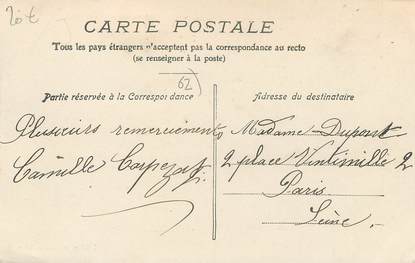 20 €
CARTE POSTALE
Tous les pays étrangers n'acceptent pas la correspondance au recto
(se renseigner à la poste)
62
Partie réservée à la Correspondance
Adresse du destinataire
Plusieurs remerciements
Camille
Madame Dupont
2 place Vintimille 2
Paris
Seine.